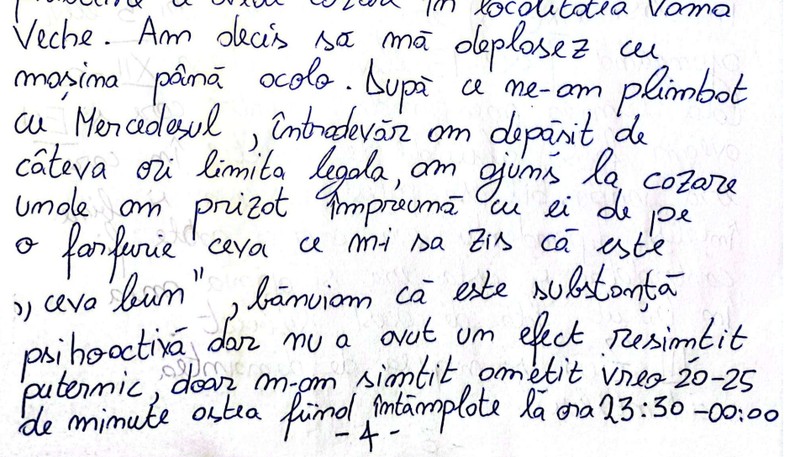 a avut cazare în localitatea Vama
Veche. Am decis să mă deplasez cu
mașina până acolo. După ce ne-am plimbat
cu Mercedesul, întradevăr am depășit de
câteva ori limita legala, am ajuns la cazare
unde am prizat împreună cu ei de pe
o farfurie ceva ce mi sa zis că este
„ceva bun", bănuiam că este substanță
psihoactivă dar nu a avut un efect resimtit
puternic, doar m-am simtit ametit vreo 20-25
de minute astea fiind întâmplate la ora 23:30-00:00
- 4 -